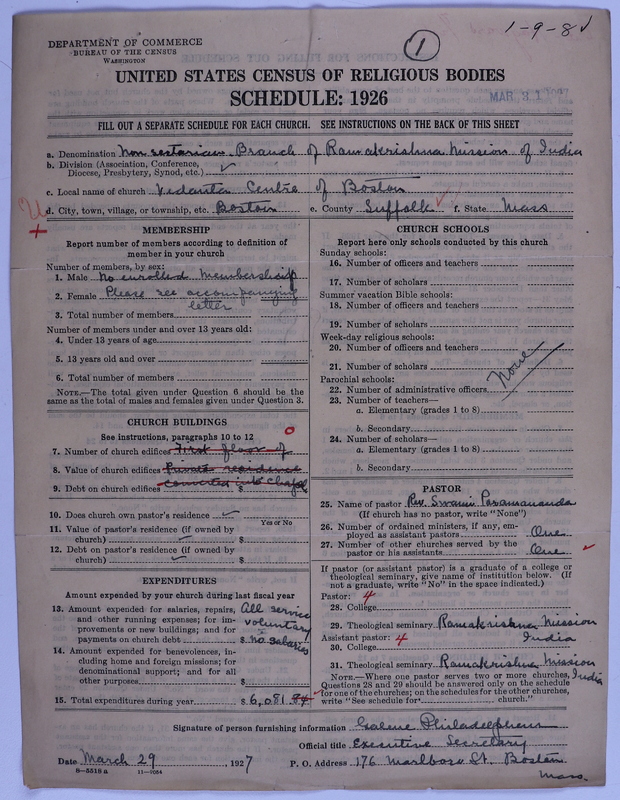 1-9-8
1
DEPARTMENT OF COMMERCE
BUREAU OF THE CENSUS
WASHINGTON
UNITED STATES CENSUS OF RELIGIOUS BODIES
SCHEDULE: 1926
MAR 31
FILL OUT A SEPARATE SCHEDULE FOR EACH CHURCH. SEE INSTRUCTIONS ON THE BACK OF THIS SHEET
a. Denomination Non sectarian Branch of Ramakrishna Mission of India
b. Division (Association, Conference, Diocese, Presbytery, Synod, etc.) ✓
c. Local name of church Vedanta Centre of Boston
U d. City, town, village, or township, etc. Boston e. County Suffolk ✓ f. State Mass
+
MEMBERSHIP
Report number of members according to definition of
member in your church
Number of members, by sex:
1. Male No enrolled membership
2. Female Please see accompanying
letter
3. Total number of members
Number of members under and over 13 years old:
4. Under 13 years of age
5. 13 years old and over
6. Total number of members
NOTE.—The total given under Question 6 should be the
same as the total of males and females given under Question 3.
CHURCH BUILDINGS
See instructions, paragraphs 10 to 12
0
7. Number of church edifices First floor of
8. Value of church edifices Private residence
9. Debt on church edifices converted into Chapel
10. Does church own pastor's residence ✓
Yes or No
11. Value of pastor's residence (if owned by
church) ✓ $
12. Debt on pastor's residence (if owned by
church) ✓ $
EXPENDITURES
Amount expended by your church during last fiscal year
13. Amount expended for salaries, repairs, All service
and other running expenses; for im-
provements or new buildings; and for voluntary
payments on church debt $ no salaries
14. Amount expended for benevolences, in-
cluding home and foreign missions; for
denominational support; and for all
other purposes $
15. Total expenditures during year $ 6,081.84
CHURCH SCHOOLS
Report here only schools conducted by this church
Sunday schools:
16. Number of officers and teachers
17. Number of scholars
Summer vacation Bible schools:
18. Number of officers and teachers
19. Number of scholars
Week-day religious schools:
20. Number of officers and teachers
21. Number of scholars
None
Parochial schools:
22. Number of administrative officers
23. Number of teachers—
a. Elementary (grades 1 to 8)
b. Secondary
24. Number of scholars—
a. Elementary (grades 1 to 8)
b. Secondary
PASTOR
25. Name of pastor Rev. Swami Paramananda
(If church has no pastor, write "None")
26. Number of ordained ministers, if any, em-
ployed as assistant pastors One
27. Number of other churches served by the
pastor or his assistants One ✓
If pastor (or assistant pastor) is a graduate of a college or
theological seminary, give name of institution below. (If
not a graduate, write "No" in the space indicated.)
Pastor: 4
28. College
29. Theological seminary Ramakrishna Mission
India
Assistant pastor: 4
30. College
31. Theological seminary Ramakrishna Mission
India
NOTE.—Where one pastor serves two or more churches,
Questions 28 and 29 should be answered only on the schedule
for one of the churches; on the schedules for the other churches,
write "See schedule for church."
Signature of person furnishing information Galene Philadelpheus
Official title Executive Secretary
Date March 29, 1927 P. O. Address 176 Marlboro St. Boston
Mass.
8—5518 a 11—7054